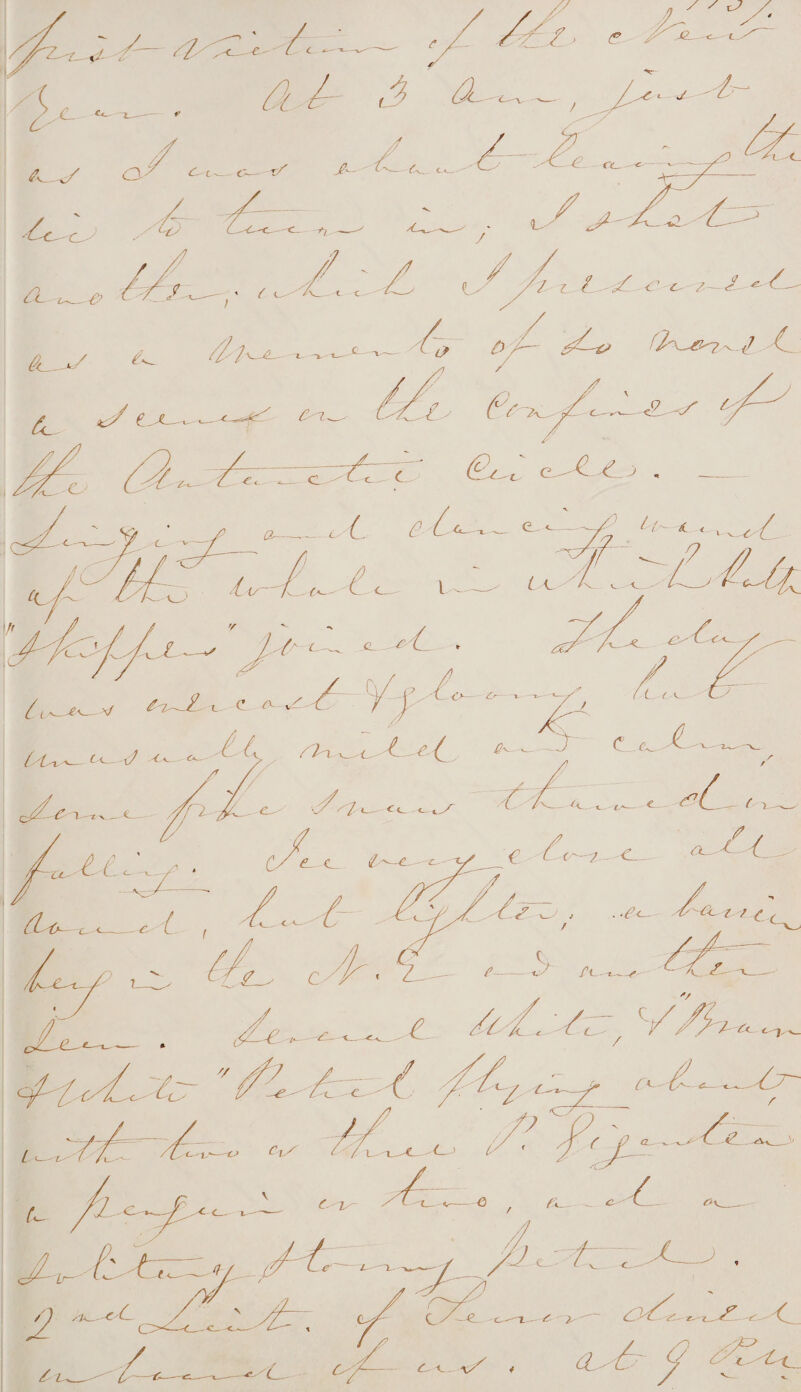 first victim of the New
Year. At 3 Am, just
as I was about leaving the
ice to turn in, I shot
another, which I preserved
as a memento of so novel
a scene on the confines of
the Antarctic Circle. —
Singing and dancing wound
up the whole in which both
"Skippers" joined. The day
was overcast & gloomy, but
unusually mild and calm,
some fine snow thawed in
falling. Ice very close all
round, but lighter; a barrier
berg in the N.E and another
seen. Several White, & "Brown
& White" Petrel flying about
with two or three P. Gigantea
a penguin or two, and a
solitary Stormy petrel.
2nd Lieut. of Terror dined
on board of us. at 9 PM